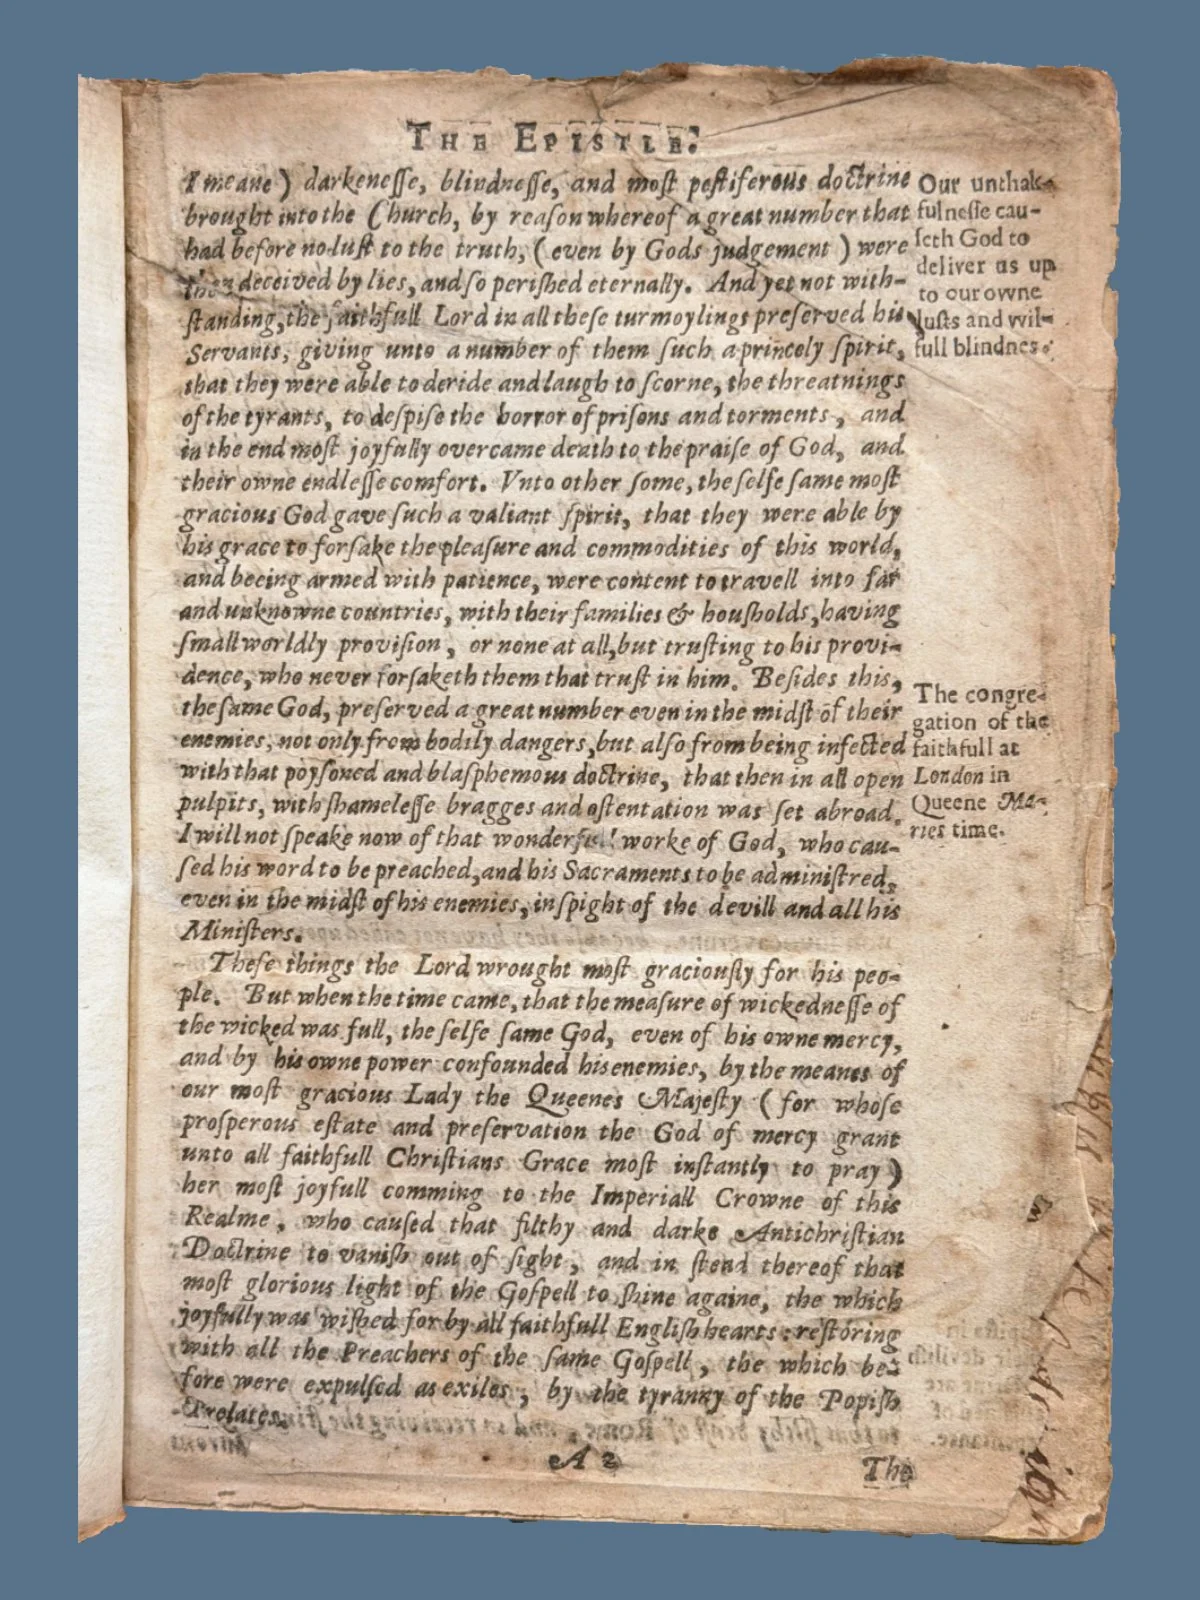 THE EPISTLE.
I meane) darkeneſſe, blindneſſe, and moſt peſtiferous doctrine
brought into the Church, by reaſon whereof a great number that
had before no luſt to the truth, (even by Gods judgement) were
then deceived by lies, and ſo periſhed eternally. And yet not with-
ſtanding, the faithfull Lord in all theſe turmoylings preſerved his
Servants, giving unto a number of them ſuch a princely ſpirit,
that they were able to deride and laugh to ſcorne, the threatnings
of the tyrants, to deſpiſe the horror of priſons and torments, and
in the end moſt joyfully overcame death to the praiſe of God, and
their owne endleſſe comfort. Vnto other ſome, the ſelfe ſame moſt
gracious God gave ſuch a valiant ſpirit, that they were able by
his grace to forſake the pleaſure and commodities of this world,
and beeing armed with patience, were content to travell into far
and unknowne countries, with their families & houſholds, having
ſmall worldly proviſion, or none at all, but truſting to his provi-
dence, who never forſaketh them that truſt in him. Beſides this,
the ſame God, preſerved a great number even in the midſt of their
enemies, not only from bodily dangers, but alſo from being infected
with that poyſoned and blaſphemous doctrine, that then in all open
pulpits, with ſhameleſſe bragges and oſtentation was ſet abroad.
I will not ſpeake now of that wonderfull worke of God, who cau-
ſed his word to be preached, and his Sacraments to be adminiſtred,
even in the midſt of his enemies, in ſpight of the devill and all his
Miniſters.
Theſe things the Lord wrought moſt graciouſly for his peo-
ple. But when the time came, that the meaſure of wickedneſſe of
the wicked was full, the ſelfe ſame God, even of his owne mercy,
and by his owne power confounded his enemies, by the meanes of
our moſt gracious Lady the Queenes Majeſty (for whoſe
proſperous eſtate and preſervation the God of mercy grant
unto all faithfull Chriſtians Grace moſt inſtantly to pray)
her moſt joyfull comming to the Imperiall Crowne of this
Realme, who cauſed that filthy and darke Antichriſtian
Doctrine to vaniſh out of ſight, and in ſtend thereof that
moſt glorious light of the Goſpell to ſhine againe, the which
joyfully was wiſhed for by all faithfull Engliſh hearts: reſtoring
with all the Preachers of the ſame Goſpell, the which be-
fore were expulſed as exiles, by the tyranny of the Popiſh
Prelates.
A 2
The
Our unthak-
fulneſſe cau-
ſeth God to
deliver us up
to our owne
luſts and wil-
full blindnes.
The congre-
gation of the
faithfull at
London in
Queene Ma-
ries time.